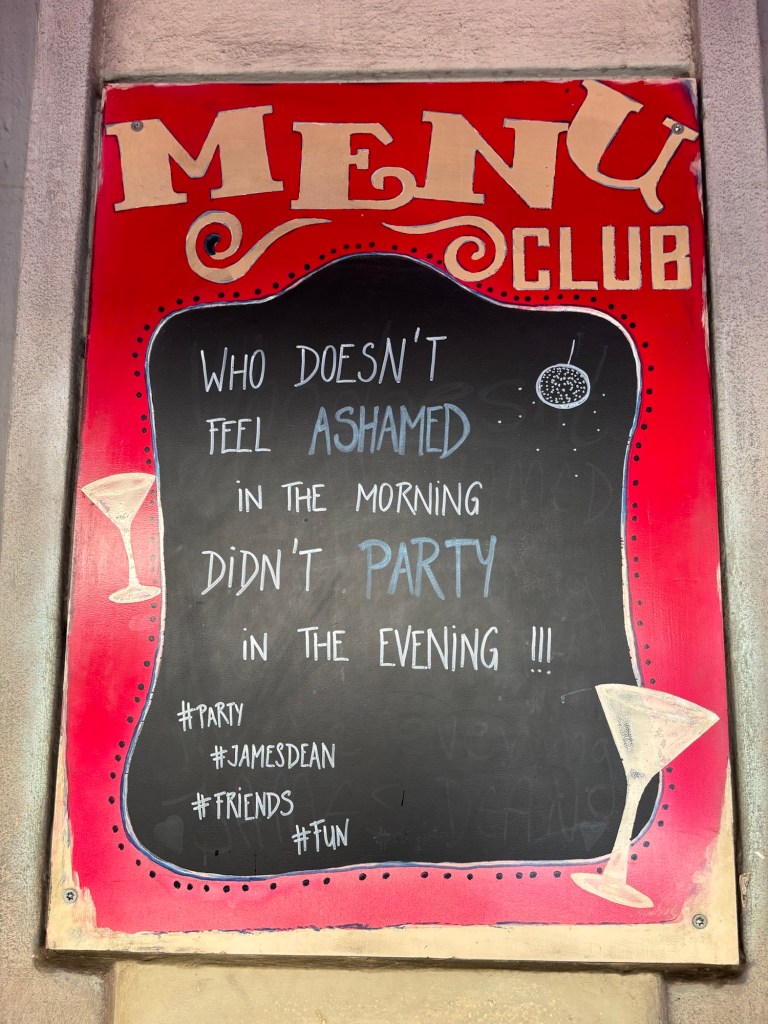 MENU
CLUB
WHO DOESN'T
FEEL ASHAMED
IN THE MORNING
DIDN'T PARTY
IN THE EVENING !!!
#PARTY
#JAMESDEAN
#FRIENDS
#FUN